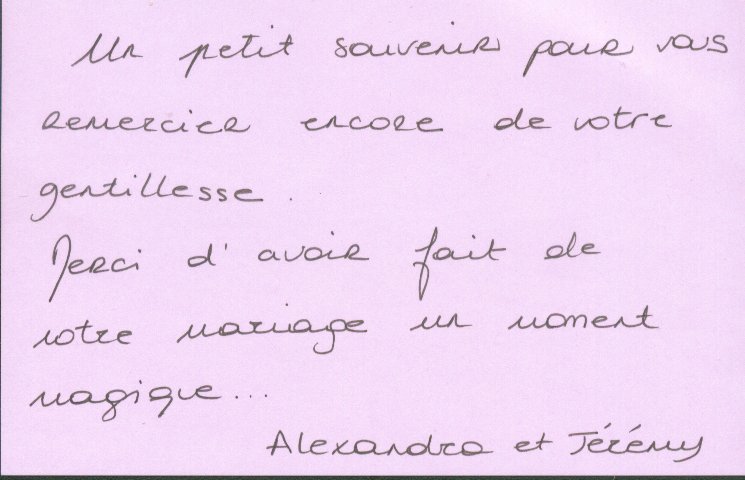 Un petit souvenir pour vous
remercier encore de votre
gentillesse.
Merci d'avoir fait de
notre mariage un moment
magique...
Alexandra et Jérémy